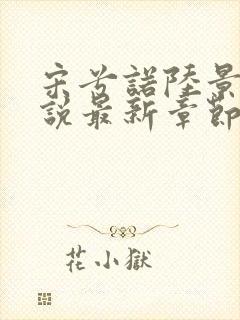 宋兮諾陸景
說最新章節
花小獄